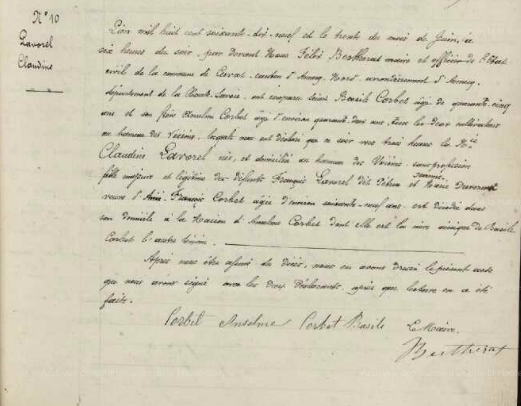 N° 10
Lavorel
Claudine
L'an mil huit cent soixante-dix-neuf et le trente du mois de Juin, à
six heures du soir, par devant Nous Félix Berthoud maire et officier de l'Etat
civil de la commune de canton d'Annecy-Nord, arrondissement d'Annecy,
département de la Haute-Savoie, ont comparu Basile Corbet âgé de quarante-cinq
ans et son frère Anselme Corbet âgé d'environ quarante-deux ans, tous les deux cultivateurs
au hameau des lesquels nous ont déclaré que ce soir vers trois heures la
Claudine Lavorel née, et domiciliée au hameau des sans profession
fille majeure et légitime des défunts François Lavorel dit et
veuve d' François Corbet âgée d'environ soixante-neuf ans, est décédée dans
son domicile à la Maison d'Anselme Corbet dont elle est la mère ainsi que de Basile
Corbet l'autre témoin.
Après nous être assuré du décès, nous en avons dressé le présent acte
que nous avons signé avec les deux déclarants, après que lecture en a été
faite.
Corbet Anselme Corbet Basile Le Maire,